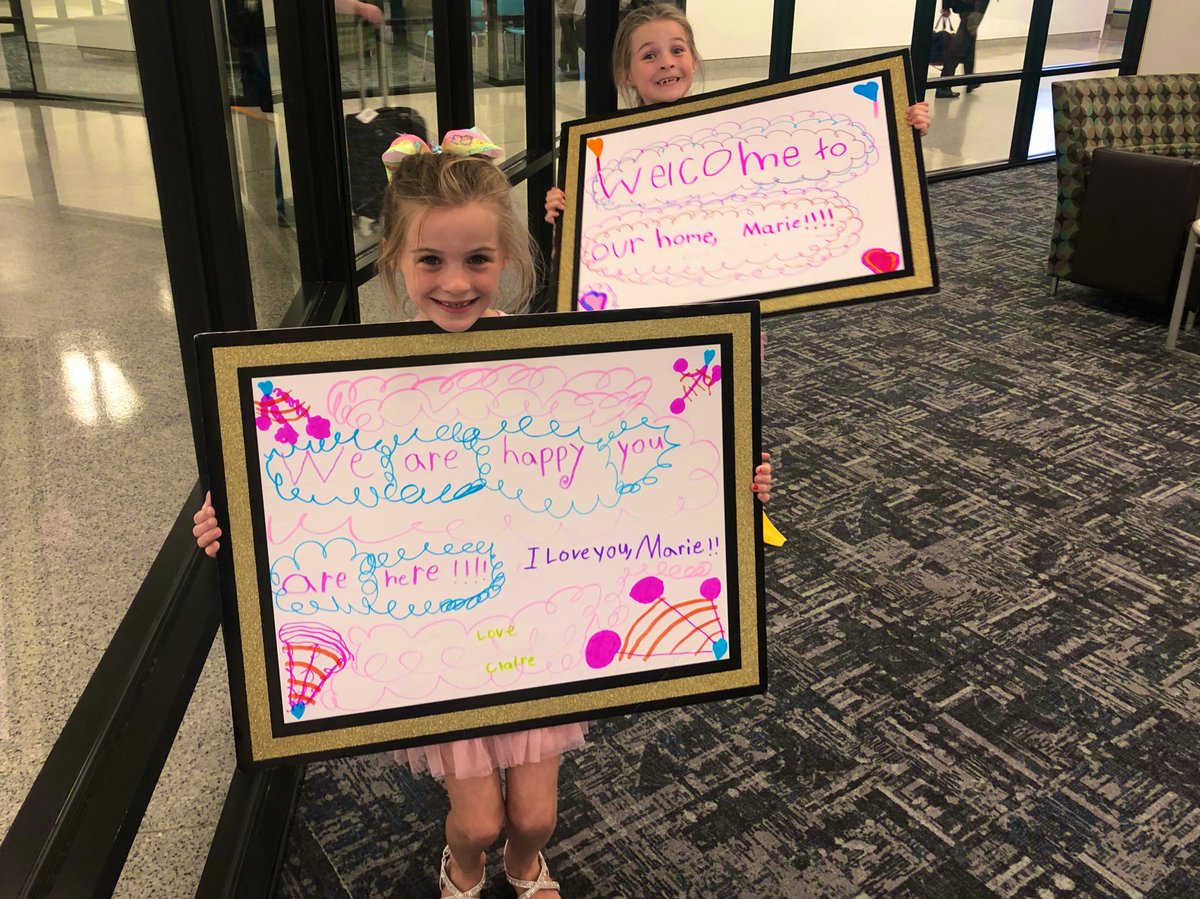 Welcome to
our home, Marie!!!!
We are happy you
are here !!!!
I Love you, Marie!!
Love
Claire